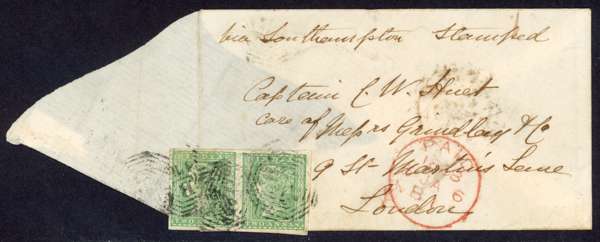 via Southampton Stamped
Captain C. W. Huet
care of Messrs Grindlay & Co
9 St Martins Lane
London
PAID